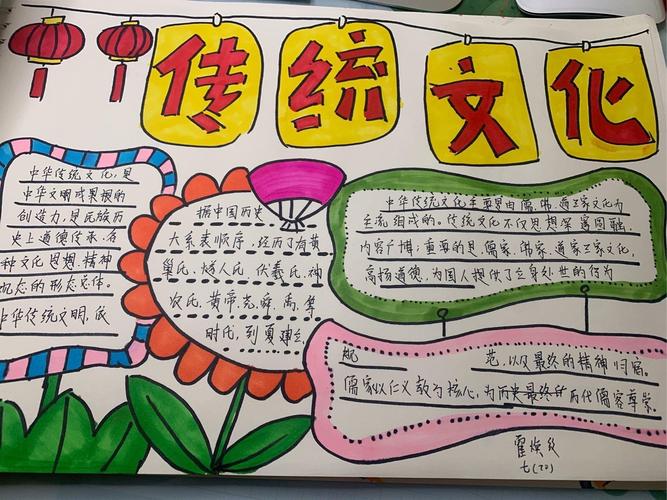 传统文化
中华传统文化,是
中华文明成果根的
创造力,是民族历
史上道德传承,各
种文化思想,精神
观念的形态总体。
中华传统文明,依
据中国历史
大系表顺序,经历了有黄
巢氏,燧人氏,伏羲氏,神
农氏,黄帝,尧,舜,禹,等
时代,到夏建立,
中华传统文化主要由儒,佛,道三家文化为
主流组成的。传统文化不仅思想深邃圆融,
内容广博;重要的是儒家,佛家,道家三家文化,
高扬道德,为国人提供了立身处世的行为
规
范,以及最终的精神归宿。
儒家以仁义教为核心,为历史最终 历代儒客尊崇
七(20)